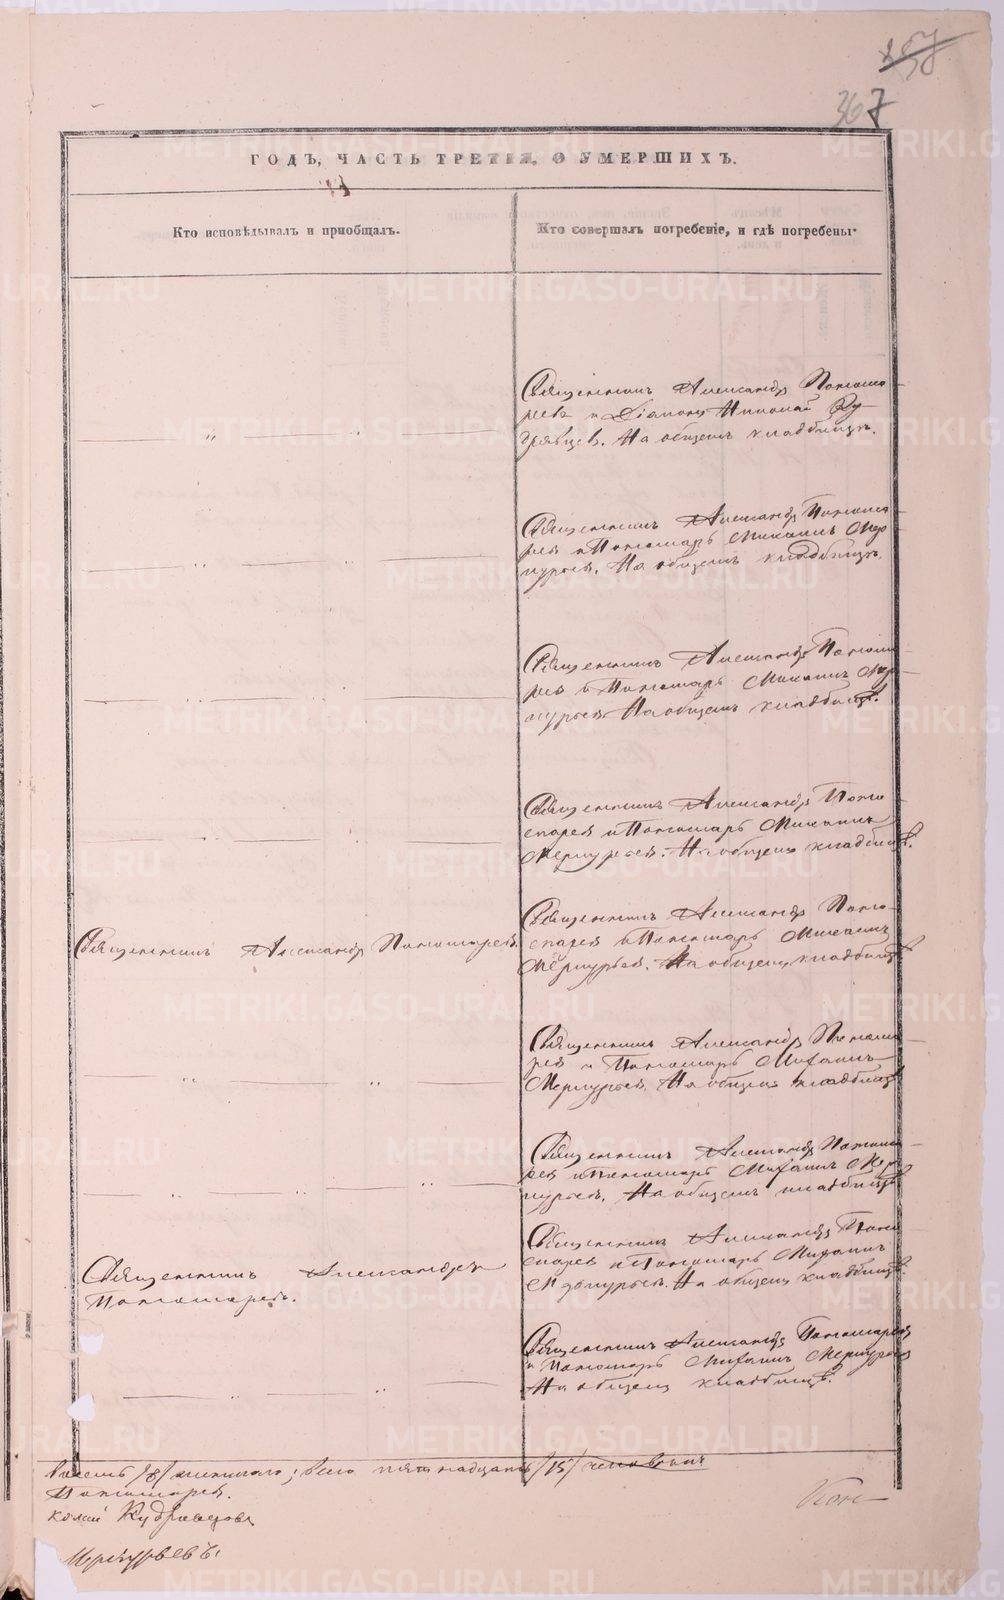 857
367
ГОДЪ, ЧАСТЬ ТРЕТІЯ, О УМЕРШИХЪ.
Кто исповѣдывалъ и пріобщалъ.
Кто совершалъ погребеніе, и гдѣ погребены.
Священникъ Александръ Понома-
ревъ и Діаконъ Николай Ку-
дрявцев. На общемъ кладбищѣ.
Священникъ Александръ Понома-
рев и Пономарь Михаилъ Мер-
курьев. На общемъ кладбищѣ.
Священникъ Александръ Понома-
рев и Пономарь Михаилъ Мер-
курьев На общемъ кладбищѣ.
Священникъ Александръ Поно-
марев и Пономарь Михаилъ
Меркурьев. На общемъ кладбищѣ.
Священникъ Александръ Пономарев.
Священникъ Александръ Поно-
марев и Пономарь Михаилъ
Меркурьев. На общемъ кладбищѣ
Священникъ Александръ Понома-
рев и Пономарь Михаилъ
Меркурьев. На общемъ кладбищѣ
Священникъ Александръ Понома-
рев и Пономарь Михаилъ Мер-
курьев. На общемъ кладбищѣ
Священникъ Александръ
Пономаревъ.
Священникъ Александръ Поно-
марев и Пономарь Михаилъ
Меркурьев. На общемъ кладбищѣ.
Священникъ Александръ Пономарев
и Пономарь Михаилъ Меркурьев
На общемъ кладбищѣ.
восемь /8/ женскаго; всего пятнадцать /15/ человѣкъ
Пономарев.
колай Кудрявцовъ
Меркурьевъ.
METRIKI.GASO-URAL.RU